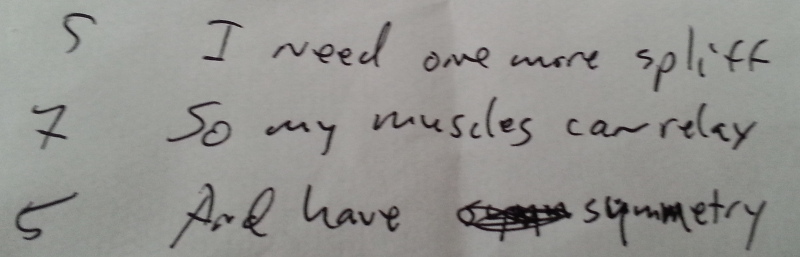 5 I need one more spliff
7 So my muscles can relay
5 And have symmetry